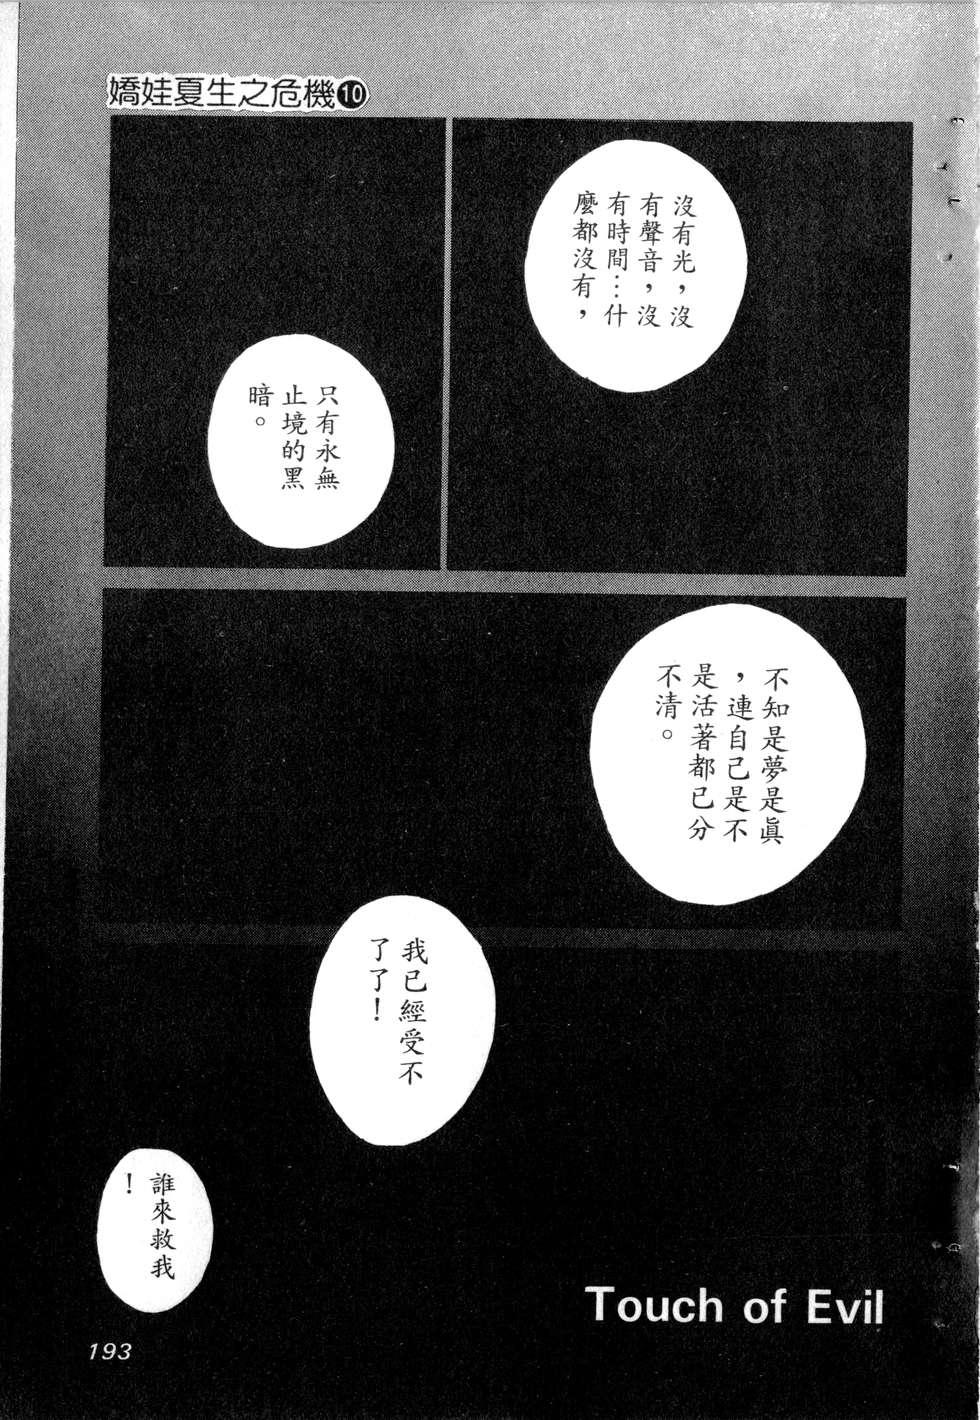 嬌娃夏生之危機10
沒有光，沒
有聲音，沒
有時間…什
麼都沒有，
只有永無
止境的黑
暗。
不知是夢是眞
，連自己是不
是活著都已分
不清。
我已經受不
了了！
誰來救我
！
Touch of Evil
193